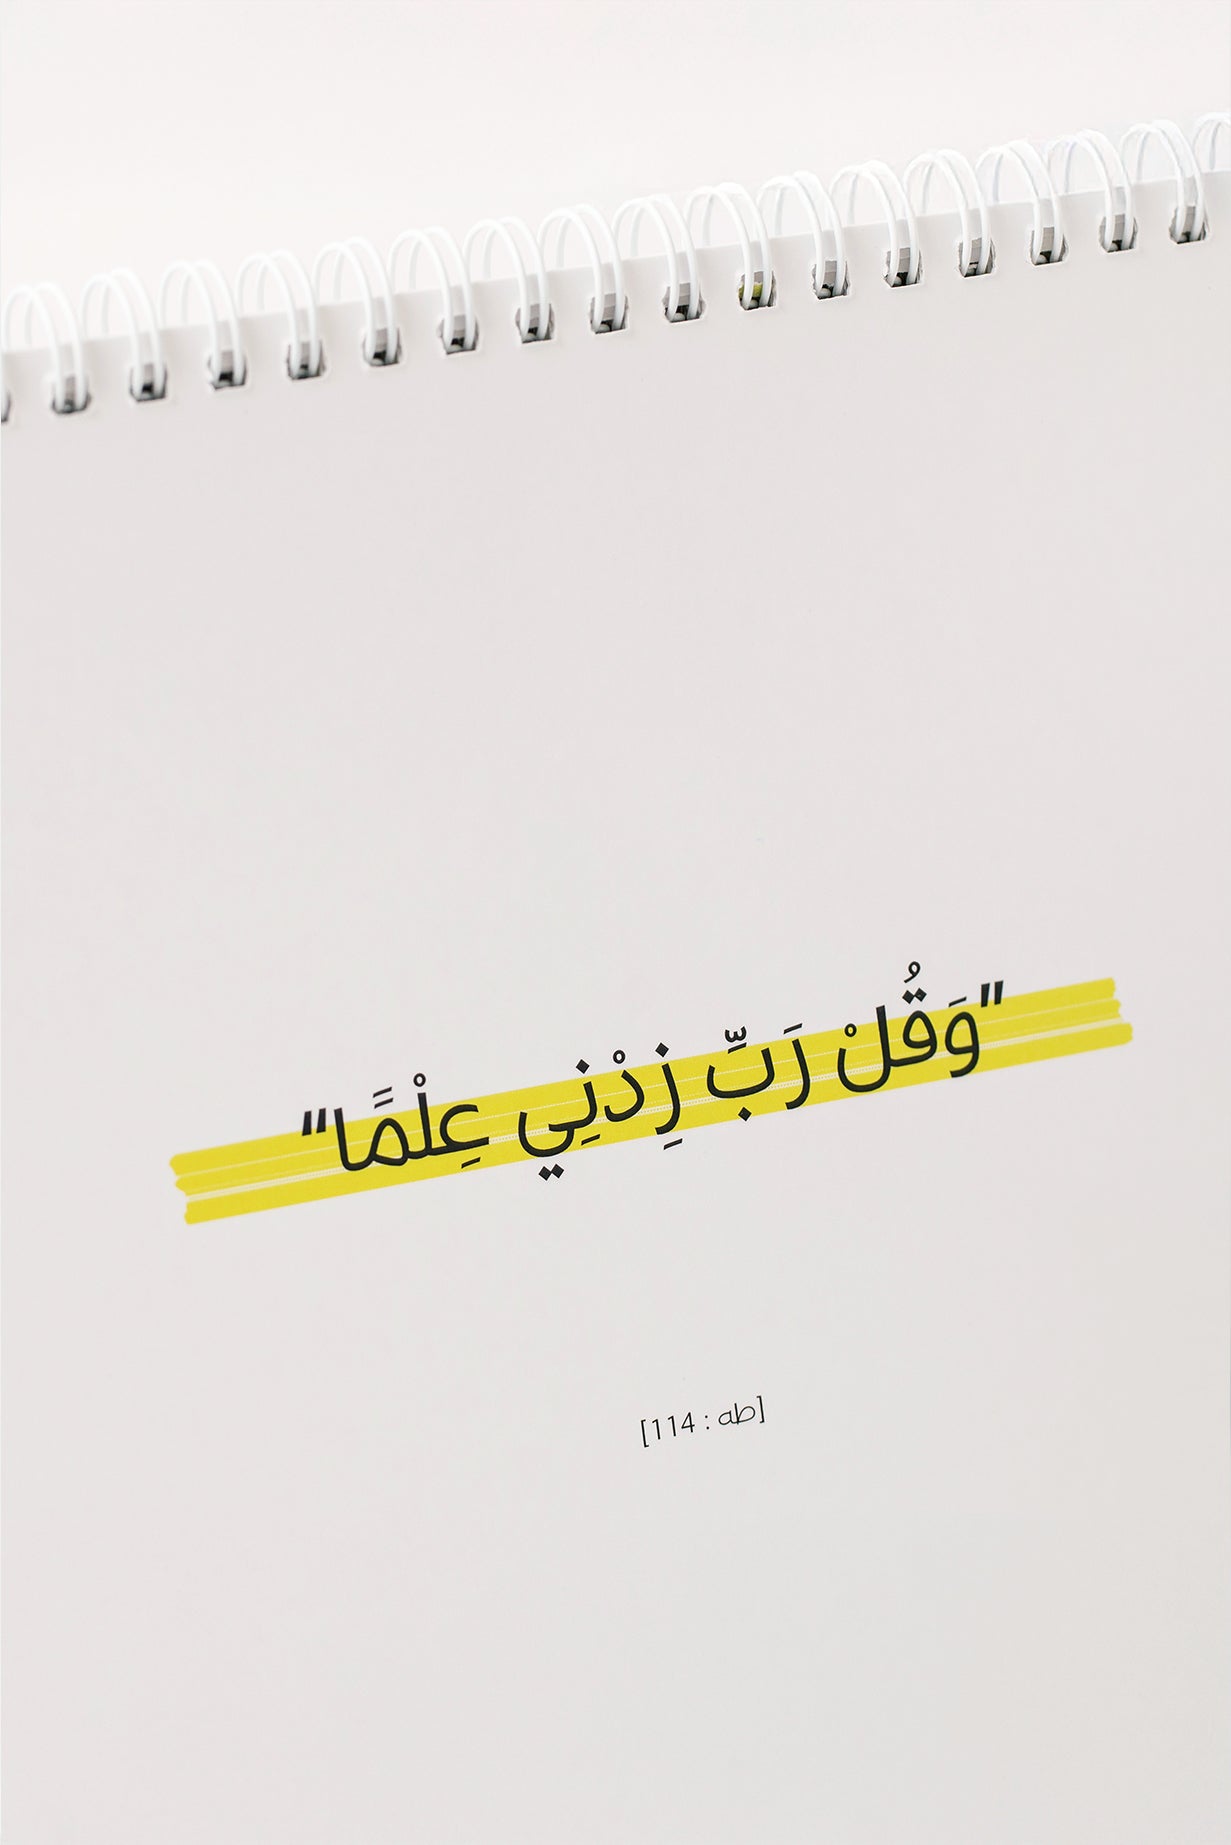 "وَقُلْ رَبِّ زِدْنِي عِلْمًا"
[طه : 114]